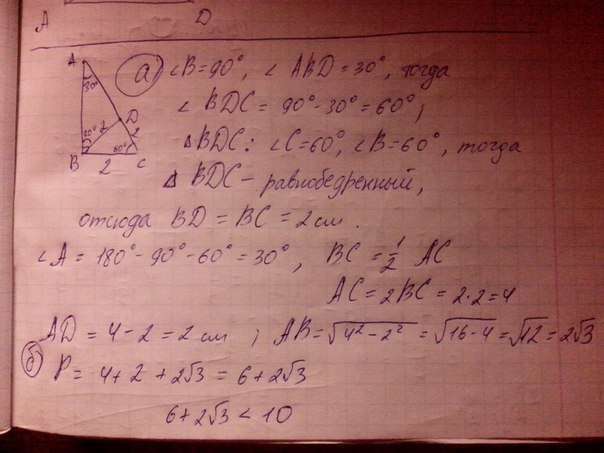 A D
A
30°
30° 2 D
2
B 60° C
2
а) ∠B=90°, ∠ABD=30°, тогда
∠BDC = 90°-30°=60°;
△BDC: ∠C=60°, ∠B=60°, тогда
△ BDC – равнобедренный,
отсюда BD = BC = 2 см.
∠A = 180°-90°-60°=30°, BC = 1/2 AC
AC = 2BC = 2·2=4
AD = 4-2 = 2 см ; AB = √4²-2² = √16-4 = √12 = 2√3
б) P = 4+2+2√3 = 6+2√3
6+2√3 < 10